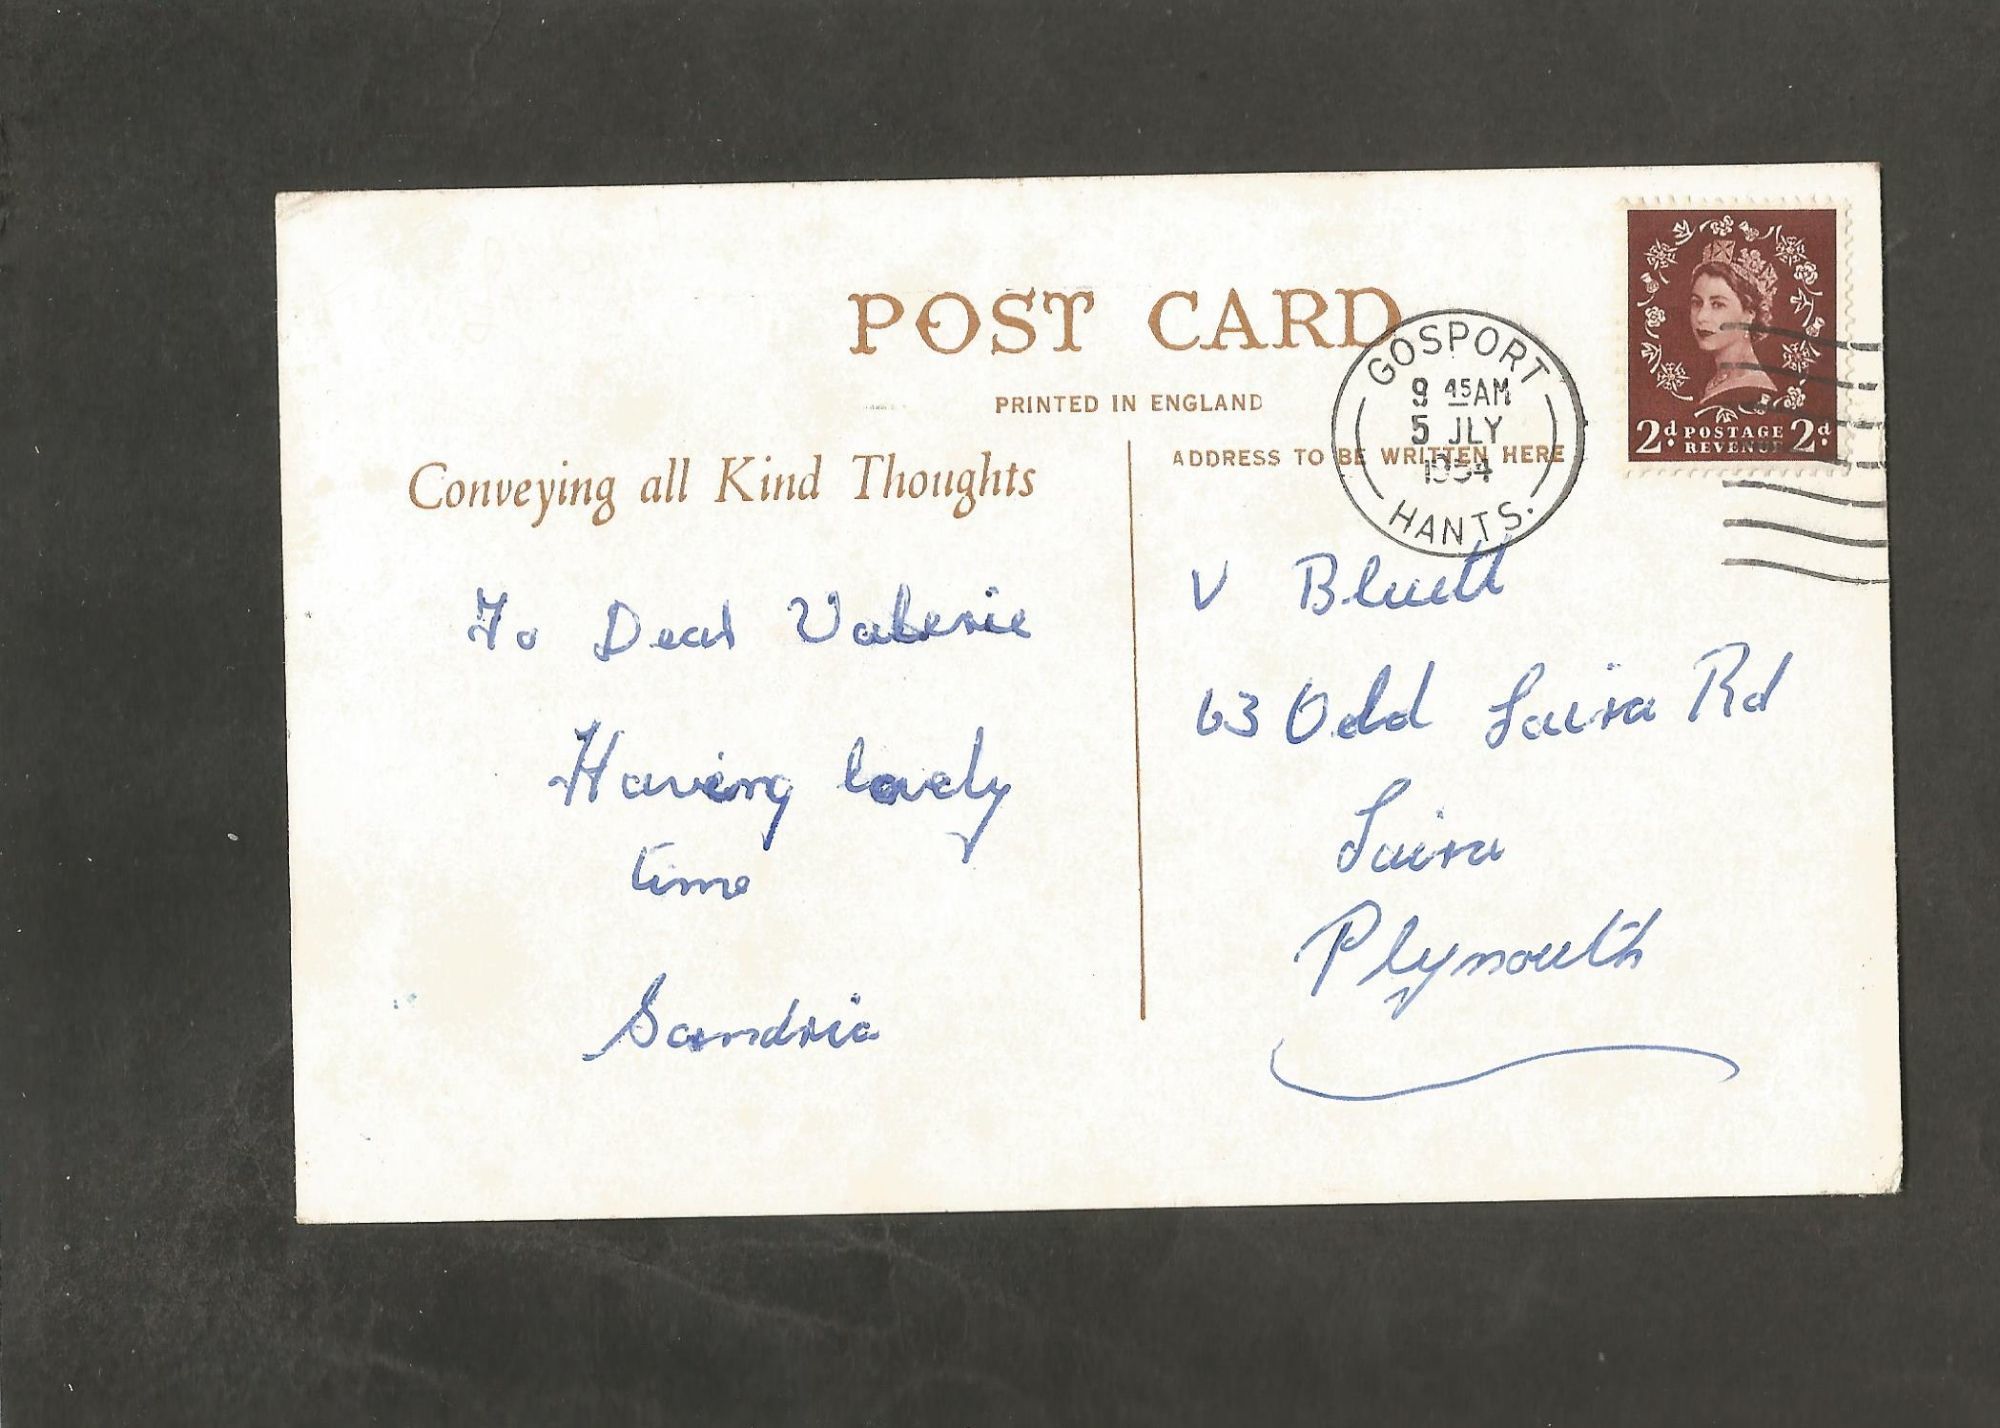 POST CARD
PRINTED IN ENGLAND
Conveying all Kind Thoughts
ADDRESS TO BE WRITTEN HERE
GOSPORT
9 45AM
5 JLY
1954
HANTS.
2d. POSTAGE REVENUE 2d.
To Dear Valerie
Having lovely
time
Sandria
V Bluett
63 Old Laira Rd
Laira
Plymouth